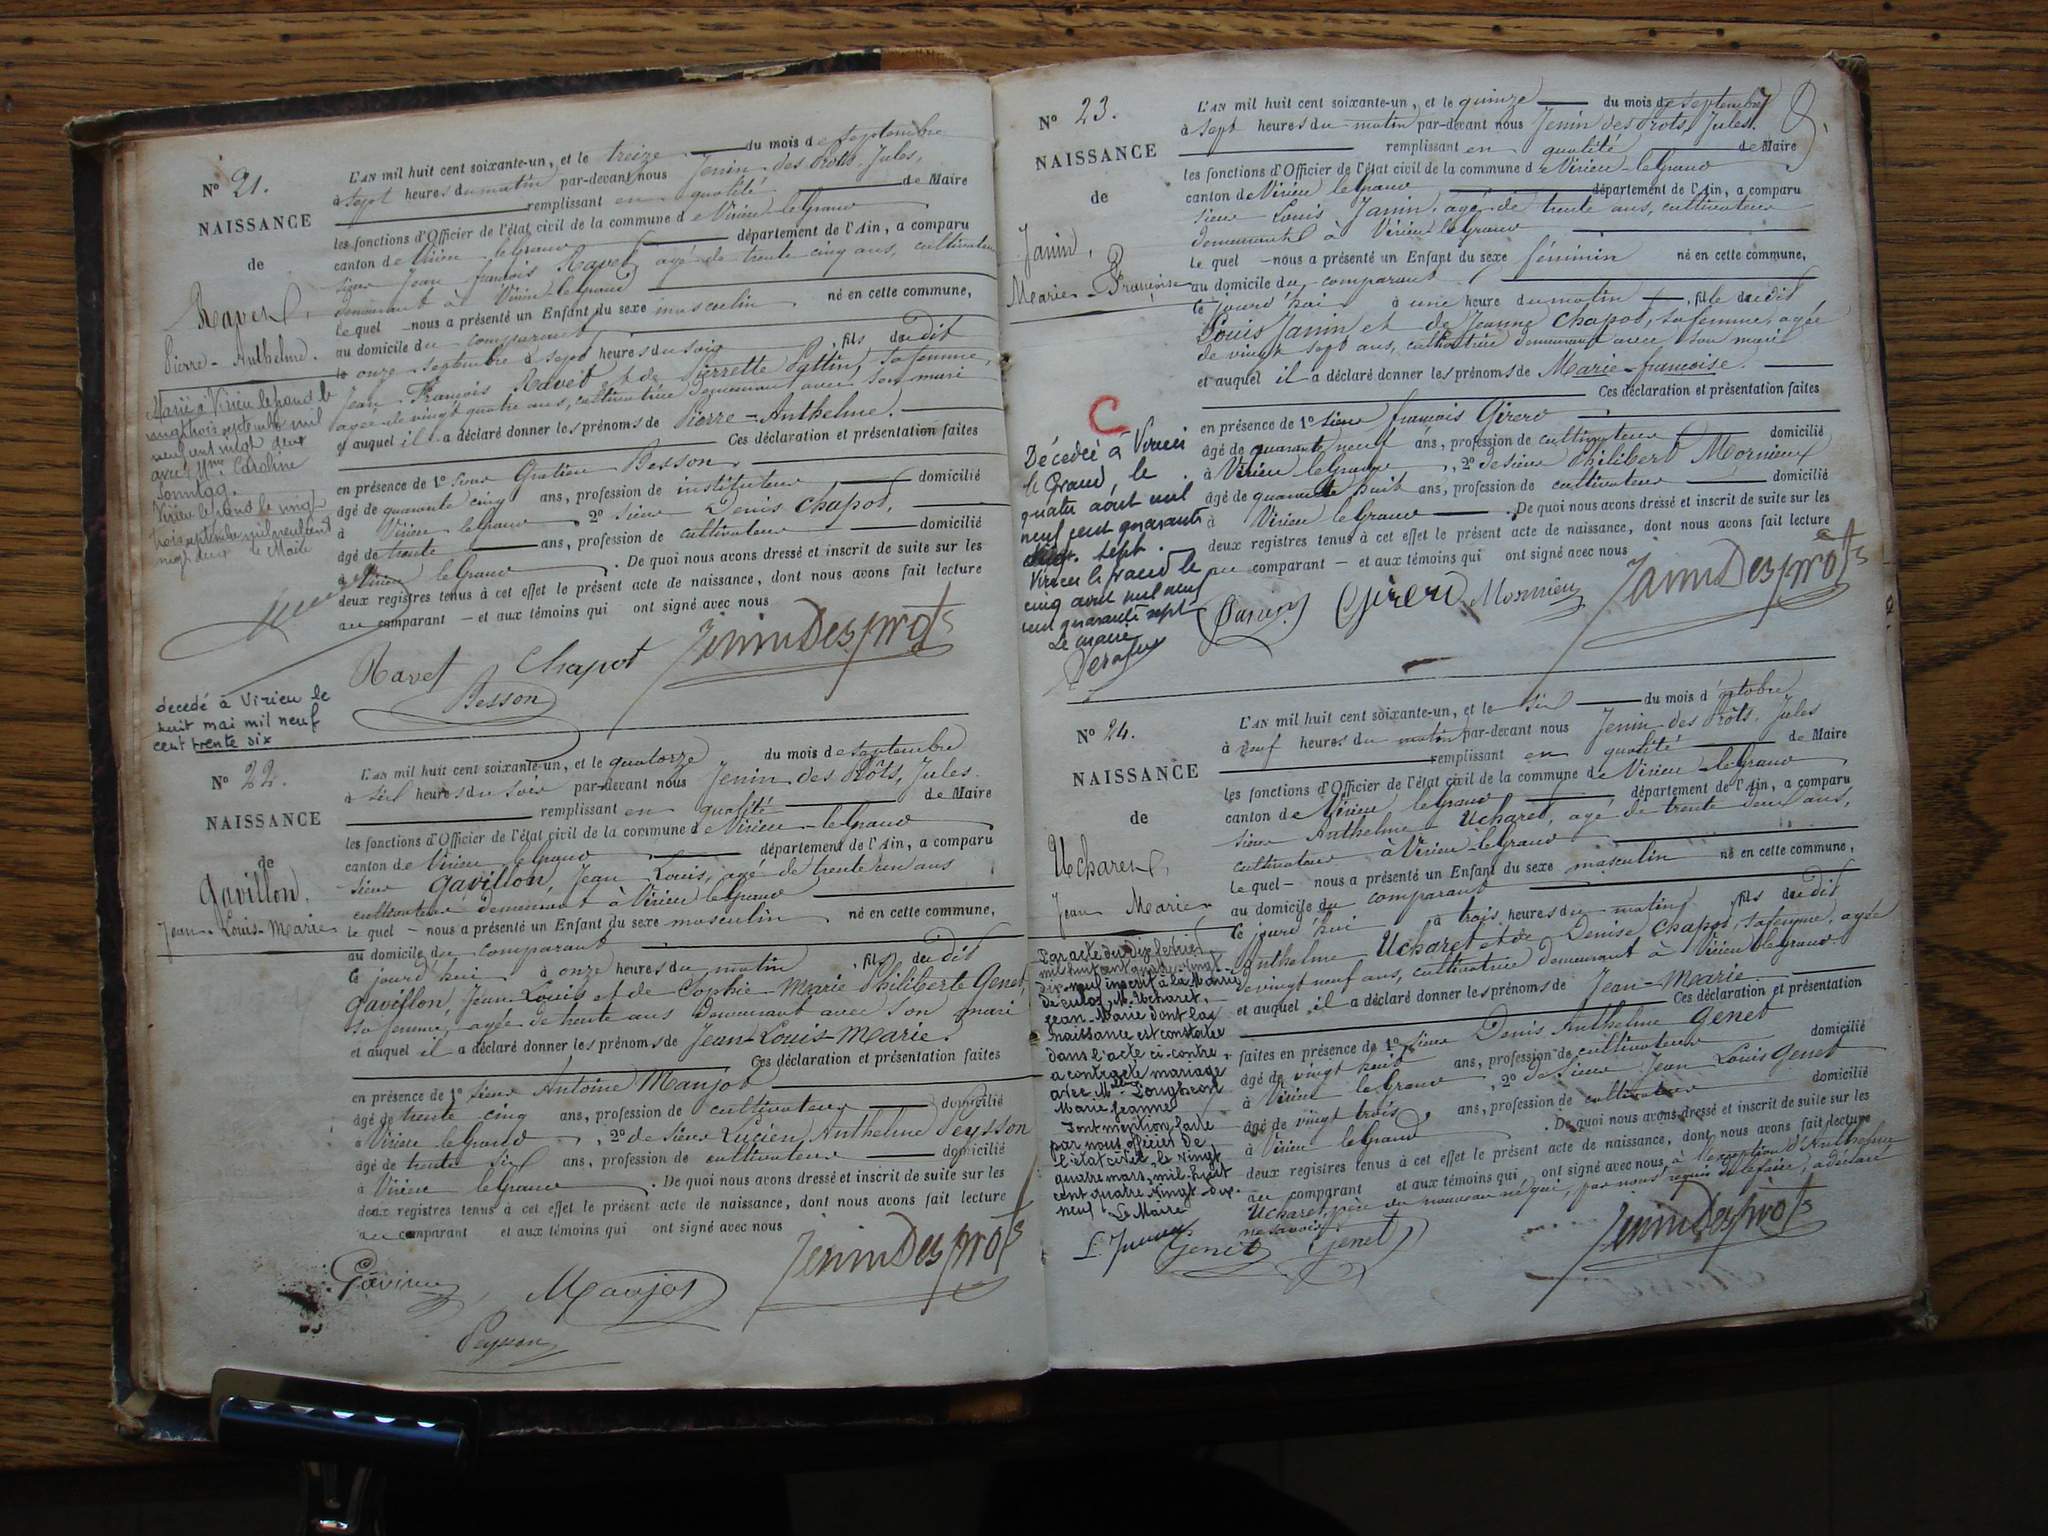 N° 21.
NAISSANCE
de
Ravet,
Pierre-Anthelme.
Marié à Virieu le grand le
vingt trois septembre mil
neuf cent vingt deux
avec Mme Caroline
Sonntag.
Virieu le Grand le vingt
trois septembre mil neuf cent
vingt deux le Maire
decedé à Virieu le
huit mai mil neuf
cent trente six
L'AN mil huit cent soixante-un, et le treize du mois de septembre
à sept heures du matin par-devant nous Jenin des Prôts, Jules,
remplissant en qualité de Maire
les fonctions d'Officier de l'état civil de la commune de Virieu-le-Grand
canton de Virieu-le-Grand département de l'Ain, a comparu
sieur Jean françois Ravet, agé de trente cinq ans, cultivateur
demeurant à Virieu le grand
lequel nous a présenté un Enfant du sexe masculin né en cette commune,
au domicile du comparant
le onze septembre à sept heures du soir, fils du dit
Jean François Ravet et de Pierrette Pattin, sa femme,
agée de vingt quatre ans, cultivatrice demeurant avec son mari
et auquel il a déclaré donner les prénoms de Pierre-Anthelme.
Ces déclaration et présentation faites
en présence de 1° sieur Gratien Besson
âgé de quarante cinq ans, profession de instituteur domicilié
à Virieu le Grand, 2° sieur Denis Chapot,
âgé de trente ans, profession de cultivateur domicilié
à Virieu le Grand. De quoi nous avons dressé et inscrit de suite sur les
deux registres tenus à cet effet le présent acte de naissance, dont nous avons fait lecture
au comparant et aux témoins qui ont signé avec nous
Ravet Chapot JeninDesprots
Besson
N° 22.
NAISSANCE
de
Gavillon,
Jean-Louis-Marie
L'AN mil huit cent soixante-un, et le quatorze du mois de septembre
à six heures du soir par-devant nous Jenin des Prôts, Jules
remplissant en qualité de Maire
les fonctions d'Officier de l'état civil de la commune de Virieu-le-Grand
canton de Virieu le Grand département de l'Ain, a comparu
sieur Gavillon, Jean Louis, agé de trente un ans
cultivateur demeurant à Virieu le Grand
lequel nous a présenté un Enfant du sexe masculin né en cette commune,
au domicile du comparant
ce jourd'hui à onze heures du matin, fils du dit
Gavillon, Jean-Louis et de Sophie-Marie Philiberte Genet,
sa femme, agée de trente ans demeurant avec son mari
et auquel il a déclaré donner les prénoms de Jean-Louis-Marie.
Ces déclaration et présentation faites
en présence de 1° sieur Antoine Manjot
âgé de trente-cinq ans, profession de cultivateur domicilié
à Virieu le Grand, 2° de sieur Lucien Anthelme Peysson
âgé de trente six ans, profession de cultivateur domicilié
à Virieu le Grand. De quoi nous avons dressé et inscrit de suite sur les
deux registres tenus à cet effet le présent acte de naissance, dont nous avons fait lecture
au comparant et aux témoins qui ont signé avec nous
Manjot JeninDesprots
Peysson
N° 23.
NAISSANCE
de
Janin,
Marie-Françoise
C
Décédée à Virieu
le Grand, le
quatre août mil
neuf cent quarante
sept.
Virieu le Grand le
cinq août mil neuf
cent quarante sept
Le maire
L'AN mil huit cent soixante-un, et le quinze du mois de septembre
à sept heures du matin par-devant nous Jenin des Prôts, Jules.
remplissant en qualité de Maire
les fonctions d'Officier de l'état civil de la commune de Virieu-le-Grand
canton de Virieu le Grand département de l'Ain, a comparu
sieur Louis Janin, agé de trente ans, cultivateur
demeurant à Virieu le Grand
lequel nous a présenté un Enfant du sexe féminin né en cette commune,
au domicile du comparant
ce jourd'hui à une heure du matin, fille du dit
Louis Janin et de Jeanne Chapot, sa femme, agée
de vingt sept ans, cultivatrice demeurant avec son mari
et auquel il a déclaré donner les prénoms de Marie-françoise.
Ces déclaration et présentation faites
en présence de 1° sieur françois Girerd
âgé de quarante neuf ans, profession de cultivateur domicilié
à Virieu le Grand, 2° de sieur Philibert Mornieux
âgé de quarante huit ans, profession de cultivateur domicilié
à Virieu le Grand. De quoi nous avons dressé et inscrit de suite sur les
deux registres tenus à cet effet le présent acte de naissance, dont nous avons fait lecture
au comparant et aux témoins qui ont signé avec nous
Girerd Mornieu JeninDesprots
N° 24.
NAISSANCE
de
Ucharet,
Jean Marie
Par acte du dix février
mil huit cent quatre-vingt
dix-neuf inscrit à la Mairie
de Culoz, M. Ucharet,
Jean-Marie dont la
naissance est constatée
dans l'acte ci-contre,
a contracté mariage
avec Mlle
Marie Jeanne
Dont mention faite
par nous officier de
l'état civil, le vingt
quatre mars, mil-huit
cent quatre-vingt-dix-
neuf. Le Maire
L'AN mil huit cent soixante-un, et le six du mois d'octobre
à neuf heures du matin par-devant nous Jenin des Prôts, Jules
remplissant en qualité de Maire
les fonctions d'Officier de l'état civil de la commune de Virieu-le-Grand
canton de Virieu le Grand département de l'Ain, a comparu
sieur Anthelme Ucharet, agé de trente deux ans,
cultivateur à Virieu-le-Grand
lequel nous a présenté un Enfant du sexe masculin né en cette commune,
au domicile du comparant
ce jourd'hui à trois heures du matin, fils du dit
Anthelme Ucharet et de Denise Chapot, sa femme, agée
de vingt neuf ans, cultivatrice demeurant à Virieu le grand
et auquel il a déclaré donner les prénoms de Jean-Marie
Ces déclaration et présentation
faites en présence de 1° sieur Denis Anthelme Genet
âgé de vingt huit ans, profession de cultivateur domicilié
à Virieu le Grand, 2° de sieur Jean Louis Genet
âgé de vingt trois ans, profession de cultivateur domicilié
à Virieu le Grand. De quoi nous avons dressé et inscrit de suite sur les
deux registres tenus à cet effet le présent acte de naissance, dont nous avons fait lecture
au comparant et aux témoins qui ont signé avec nous à l'exception d'Anthelme
Ucharet, père du nouveau né qui, par nous requis de le faire, a déclaré
ne savoir.
Genet Genet JeninDesprots